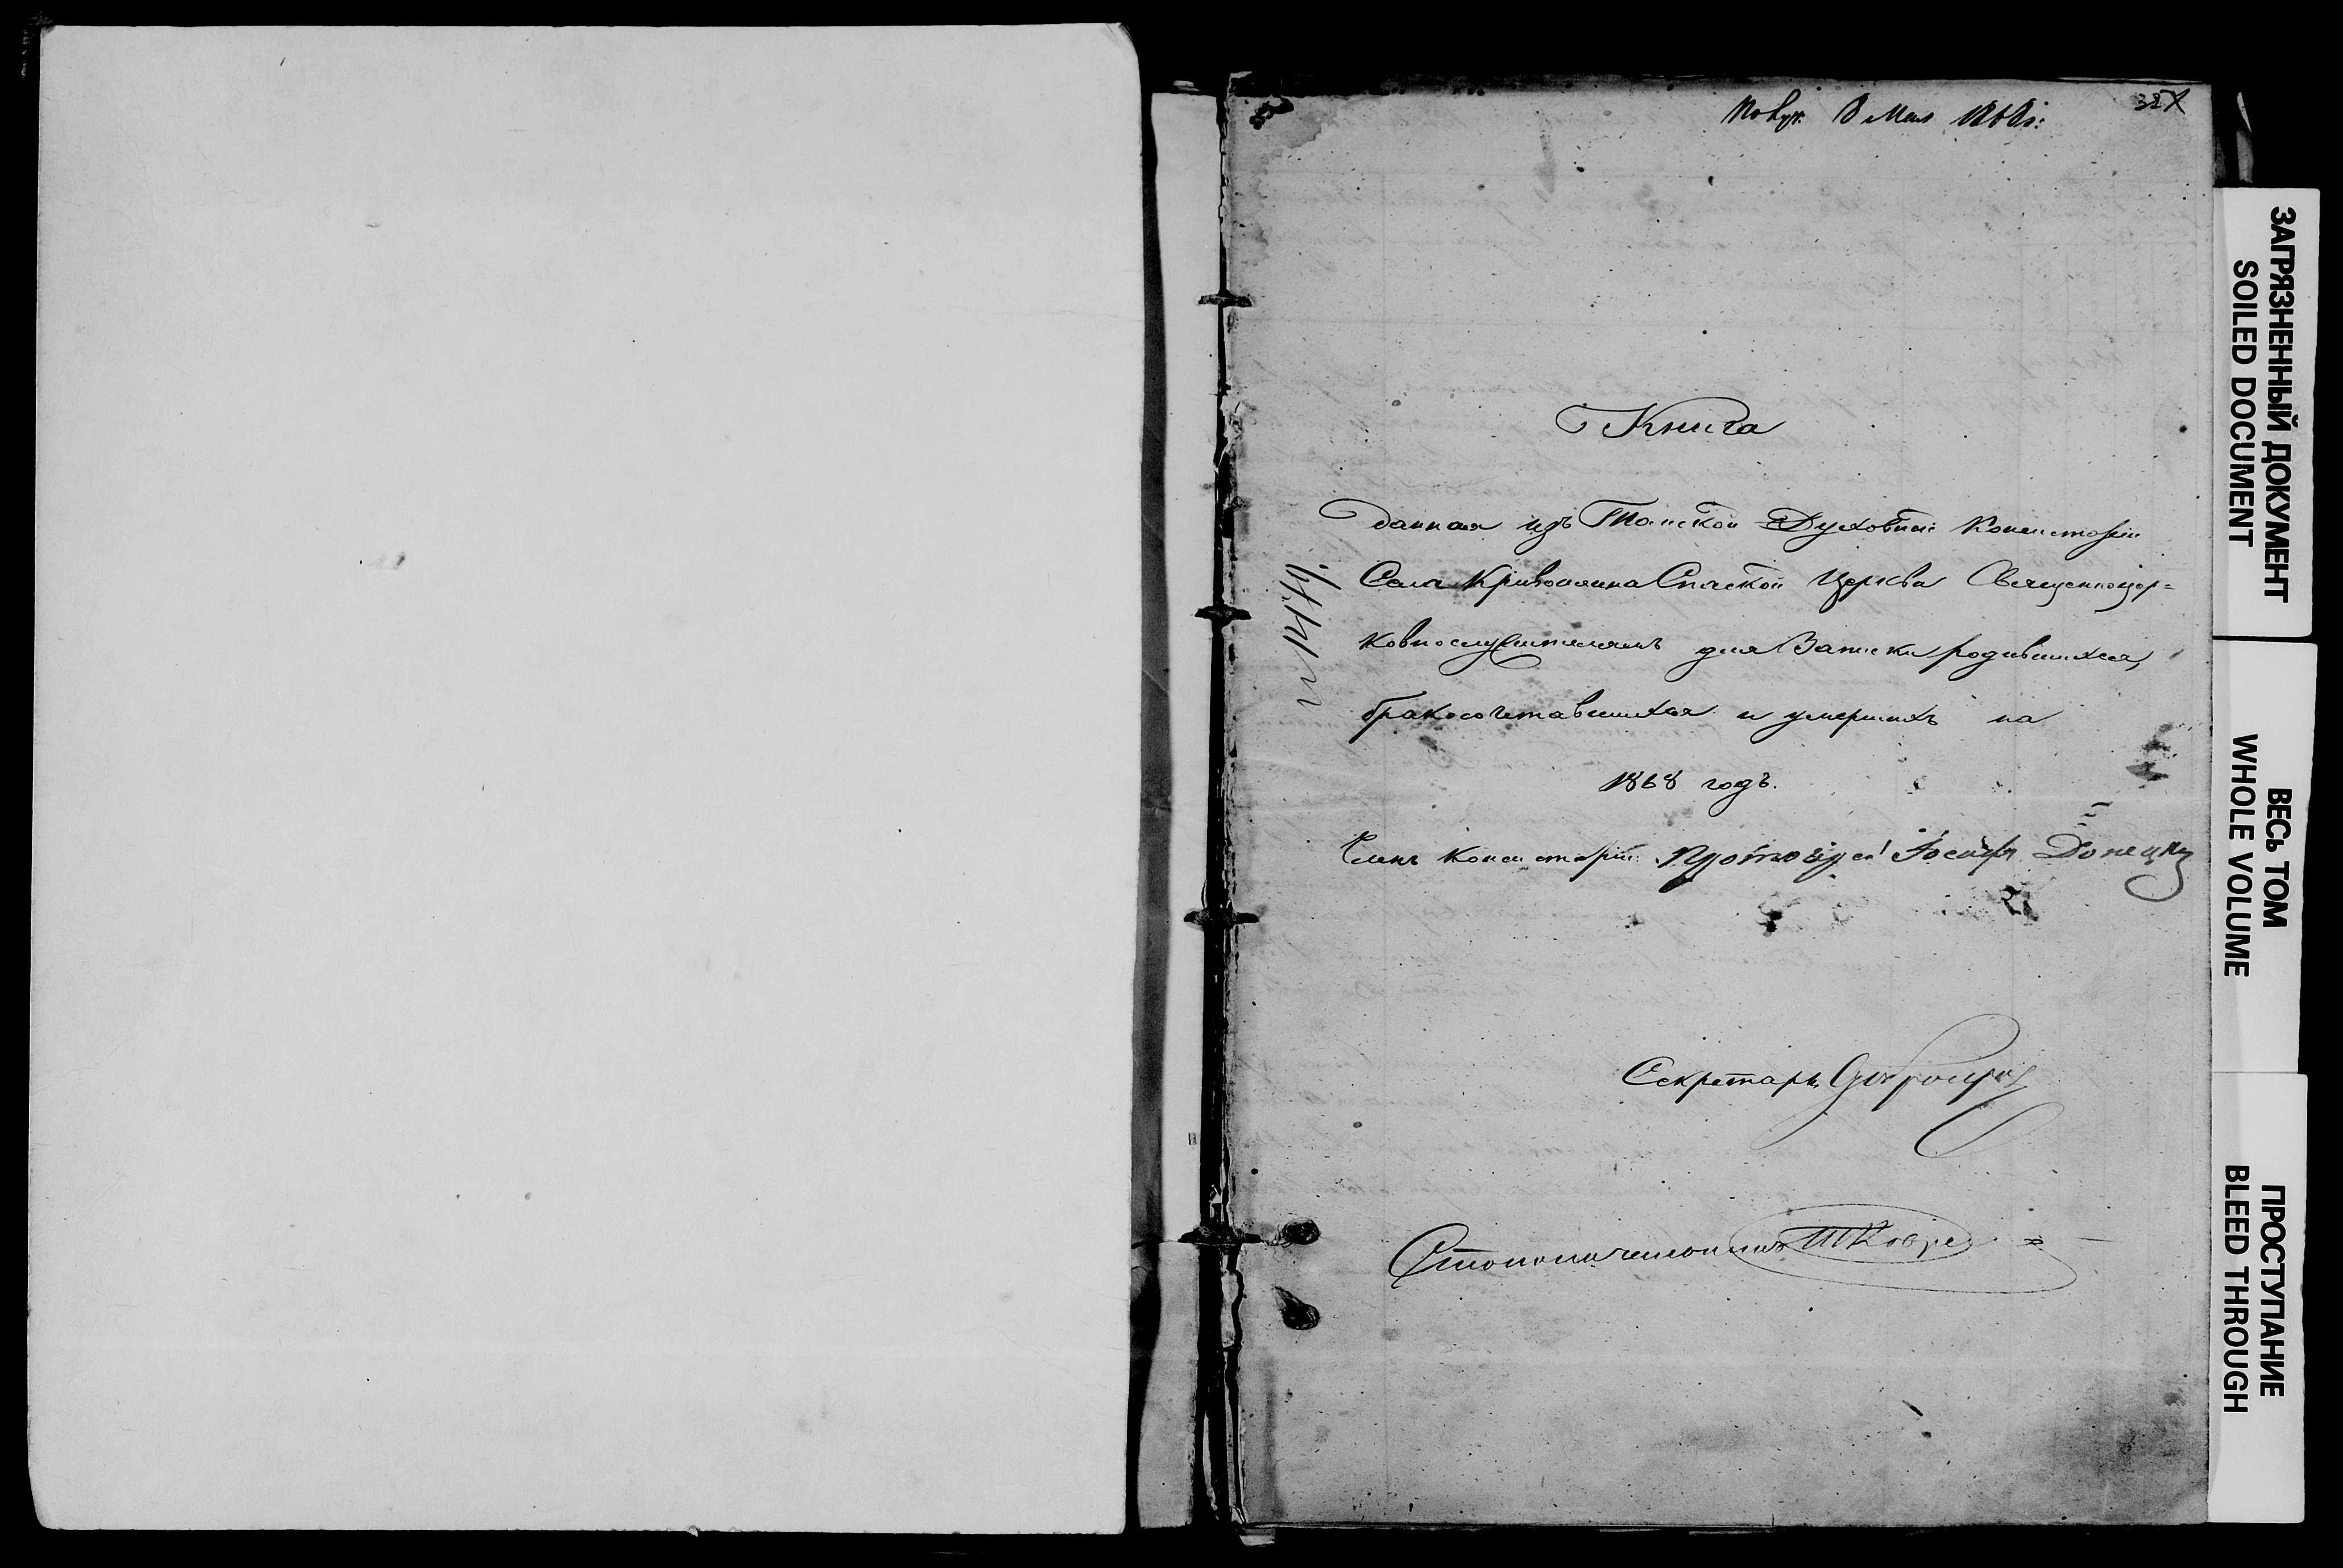 Книга
данная изъ Томской Духовной Консисторіи
Села Кривошеина Спаской Церкви Священноцер=
ковнослужителямъ для Записки родившихся,
бракосочетавшихся и умершихъ на
1868 годъ.
Членъ Консисторіи Протоіерей Іосифъ Донецкій
Секретарь
Столоначальникъ
ЗАГРЯЗНЕННЫЙ ДОКУМЕНТ
SOILED DOCUMENT
ВЕСЬ ТОМ
WHOLE VOLUME
ПРОСТУПАНИЕ
BLEED THROUGH